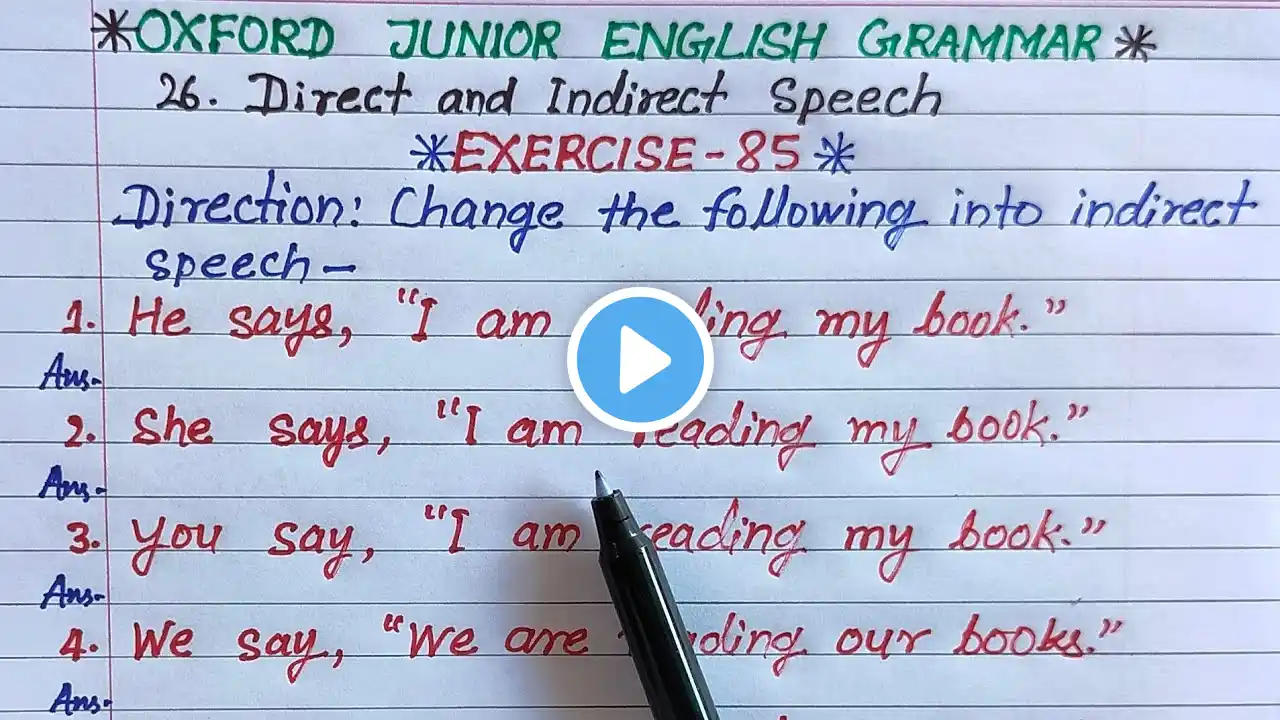 *OXFORD JUNIOR ENGLISH GRAMMAR*
26. Direct and Indirect Speech
*EXERCISE-85*
Direction: Change the following into indirect
speech-
1. He says, "I am my book."
Ans-
2. She says, "I am reading my book."
Ans-
3. You say, "I am reading my book."
Ans-
4. We say, "We are our books."
Ans-